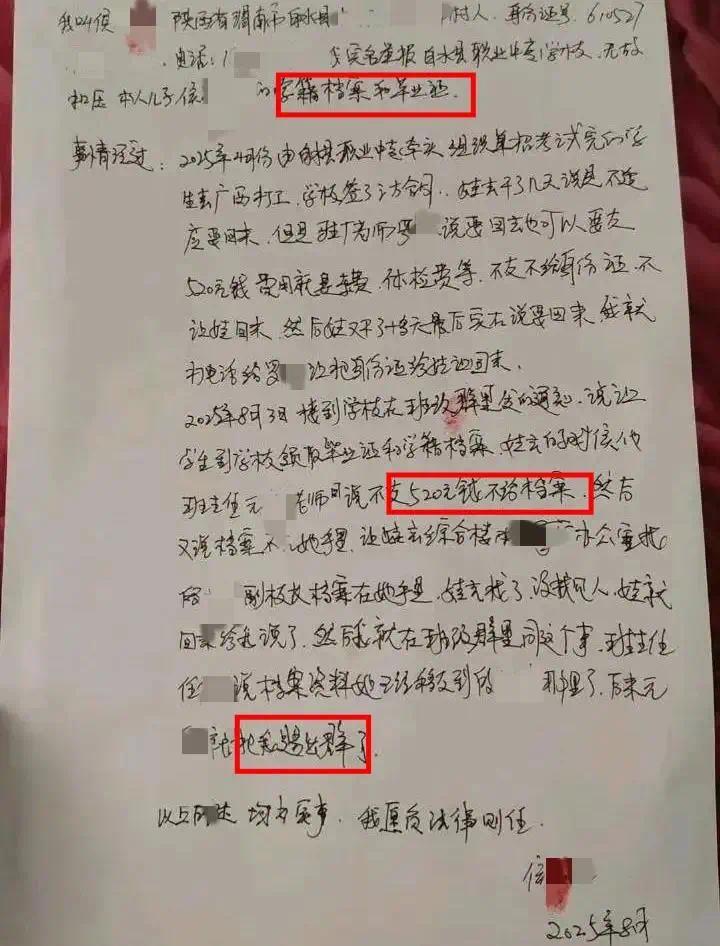 我叫侯 陕西省渭南市白水县 村人，身份证号，610527
，电话：1 我实名举报白水县职业中专学校，无故
扣压本人儿子 的学籍档案和毕业证。
事情经过：2025年4月份由白水县职业中专牵头组织单招考试完的学
生去广西打工，学校签了订合同，娃去干了几天说是不适
应要回来，但是驻厂老师罗 说要回去也可以要交
520元钱费用就是车费，体检费等，不交不给身份证，不
让娃回来，然后娃又干了十多天最后实在说要回来，我就
打电话给罗 让把身份证给娃回来。
2025年8月3日接到学校在班级群里发的通知，说让
学生到学校领取毕业证和学籍档案，娃去的时候他
班主任元 老师说不交520元钱不给档案，然后
又说档案不 她手里，让娃去综合楼 办公室找
副校长档案在她手里，娃去找了，没找见人，娃就
回来给我说了，然后我就在班级群里问这个事，班主任
任 说档案资料她已经移交到 那里了，后来元
把我踢出群了。
以上 均为实事，我愿负法律责任.
2025年8月